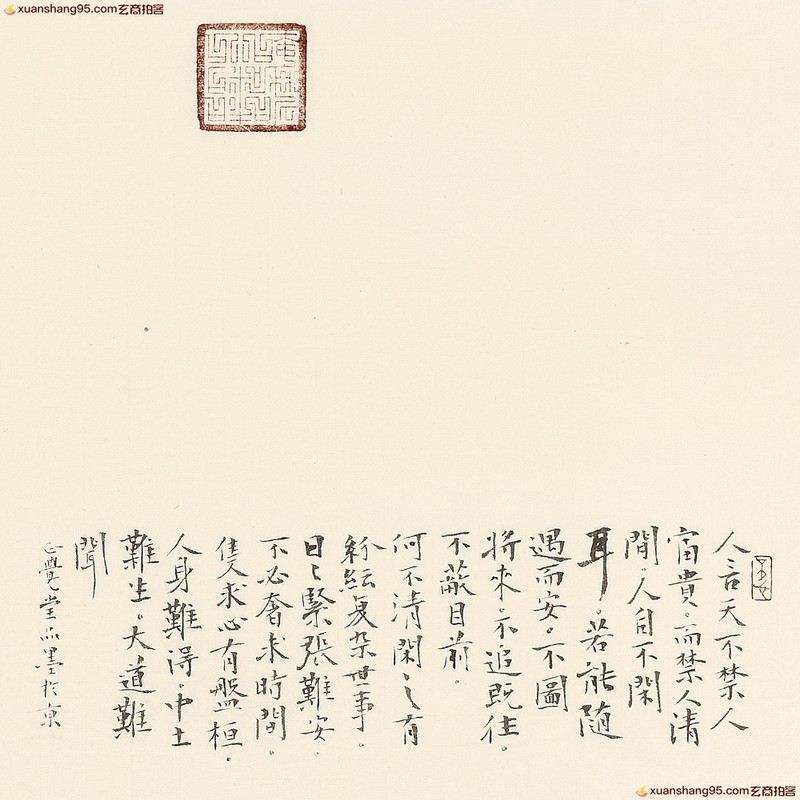 xuanshang95.com玄商拍客
人言天不禁人
富貴。而禁人清
間。人自不閑
耳。若能隨
遇而安。不圖
將來。不追既往。
不蔽目前。
何不清閑之有
紛紜复杂世事。
日日緊張難安。
不必奢求時間。
隻求心有盤桓。
人身難得。中土
難生。大道難
聞
正覺堂品墨於京
xuanshang95.com玄商拍客